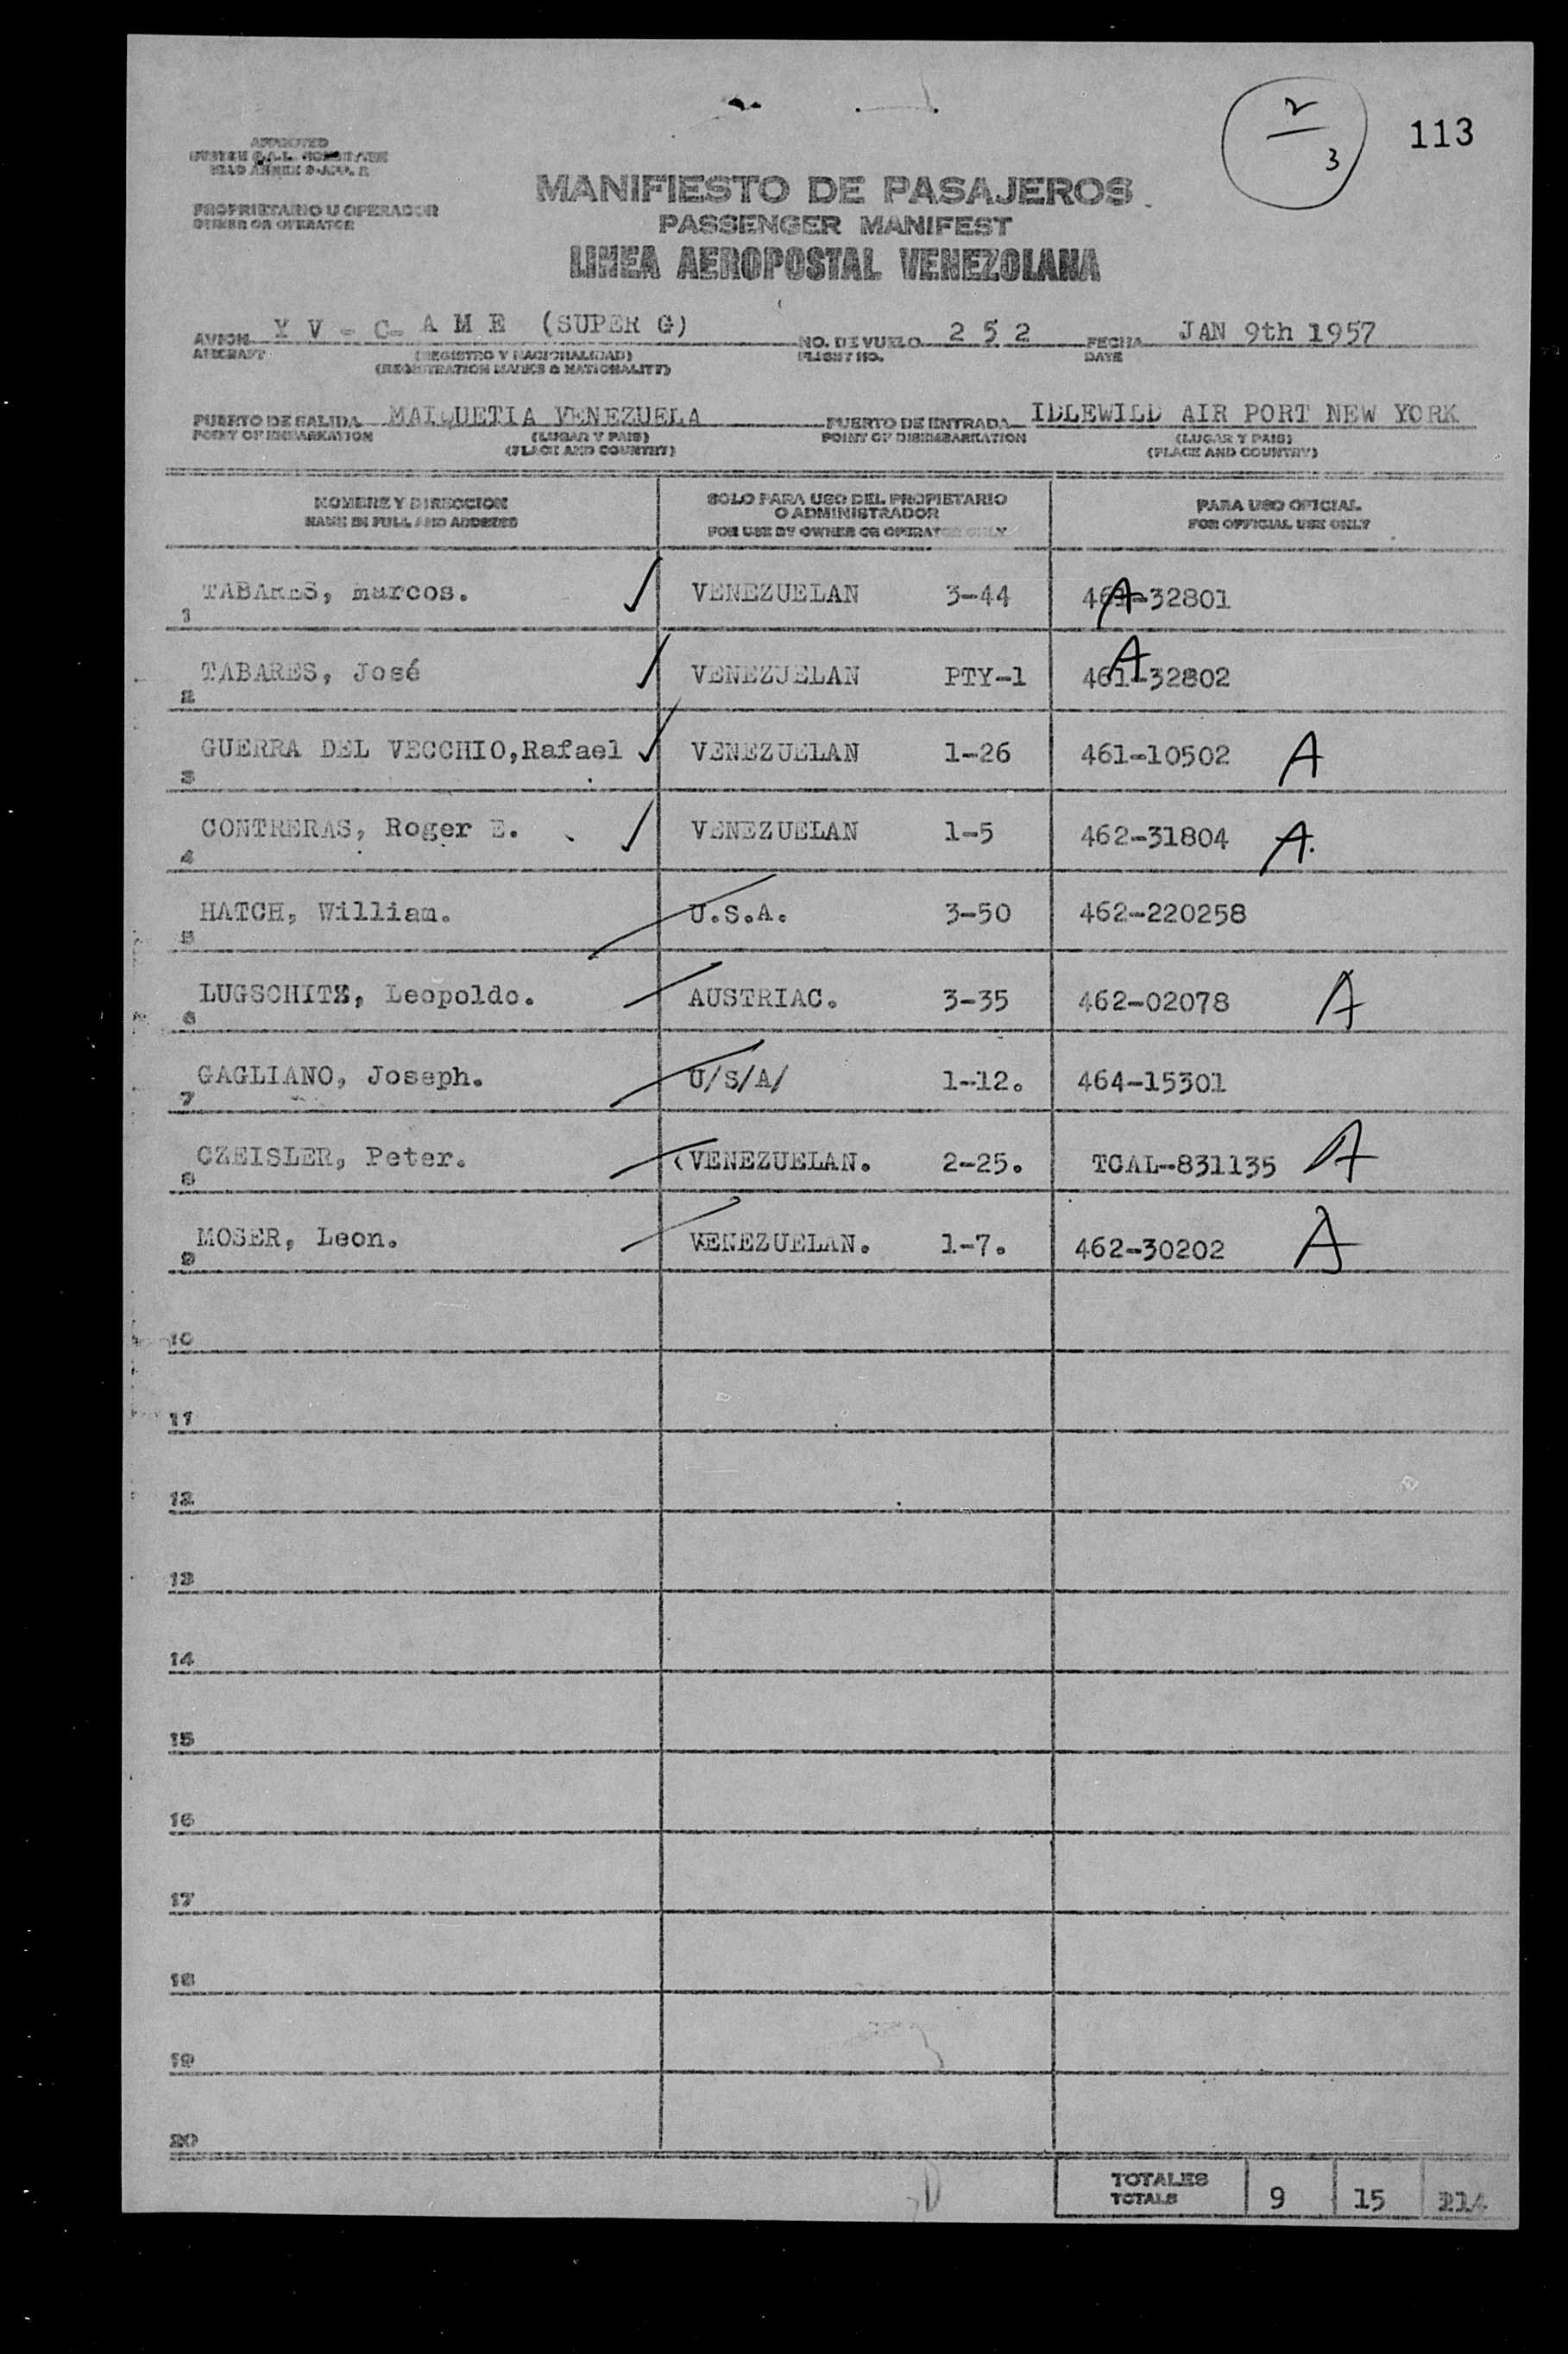 2
3
113
MANIFIESTO DE PASAJEROS
PASSENGER MANIFEST
LINEA AEROPOSTAL VENEZOLANA
PROPRIETARIO U OPERADOR
OWNER OR OPERATOR
AVION Y V - C- A M E (SUPER G) NO. DE VUELO 2 5 2 FECHA JAN 9th 1957
AIRCRAFT (REGISTRO Y NACIONALIDAD) FLIGHT NO. DATE
(REGISTRATION MARKS & NATIONALITY)
PUERTO DE SALIDA MAIQUETIA VENEZUELA PUERTO DE ENTRADA IDLEWILD AIR PORT NEW YORK
POINT OF EMBARKATION (LUGAR Y PAIS) POINT OF DISEMBARKATION (LUGAR Y PAIS)
(PLACE AND COUNTRY) (PLACE AND COUNTRY)
NOMBRE Y DIRECCION SOLO PARA USO DEL PROPIETARIO PARA USO OFICIAL
NAME IN FULL AND ADDRESS O ADMINISTRADOR FOR OFFICIAL USE ONLY
FOR USE BY OWNER OR OPERATOR ONLY
1 TABARES, marcos. VENEZUELAN 3-44 461-32801 A
2 TABARES, José VENEZUELAN PTY-1 461-32802 A
3 GUERRA DEL VECCHIO,Rafael VENEZUELAN 1-26 461-10502 A
4 CONTRERAS, Roger E. VENEZUELAN 1-5 462-31804 A.
5 HATCH, William. U.S.A. 3-50 462-220258
6 LUGSCHITZ, Leopoldo. AUSTRIAC. 3-35 462-02078 A
7 GAGLIANO, Joseph. U/S/A/ 1-12. 464-15301
8 CZEISLER, Peter. VENEZUELAN. 2-25. TCAL-831135 A
9 MOSER, Leon. VENEZUELAN. 1-7. 462-30202 A
10
11
12
13
14
15
16
17
18
19
20
TOTALES 9 15 214
TOTALS